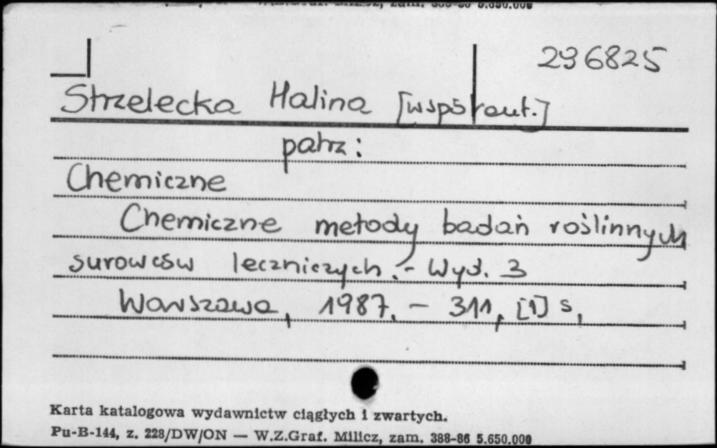 236825
Strzelecka Halina [współaut.]
patrz:
Chemiczne
Chemiczne metody badań roślinnych
surowców leczniczych.- Wyd. 3
Warszawa, 1987. - 311, [1] s.
Karta katalogowa wydawnictw ciągłych i zwartych.
Pu-B-144, z. 228/DW/ON — W.Z.Graf. Milicz, zam. 388-86 5.650.000